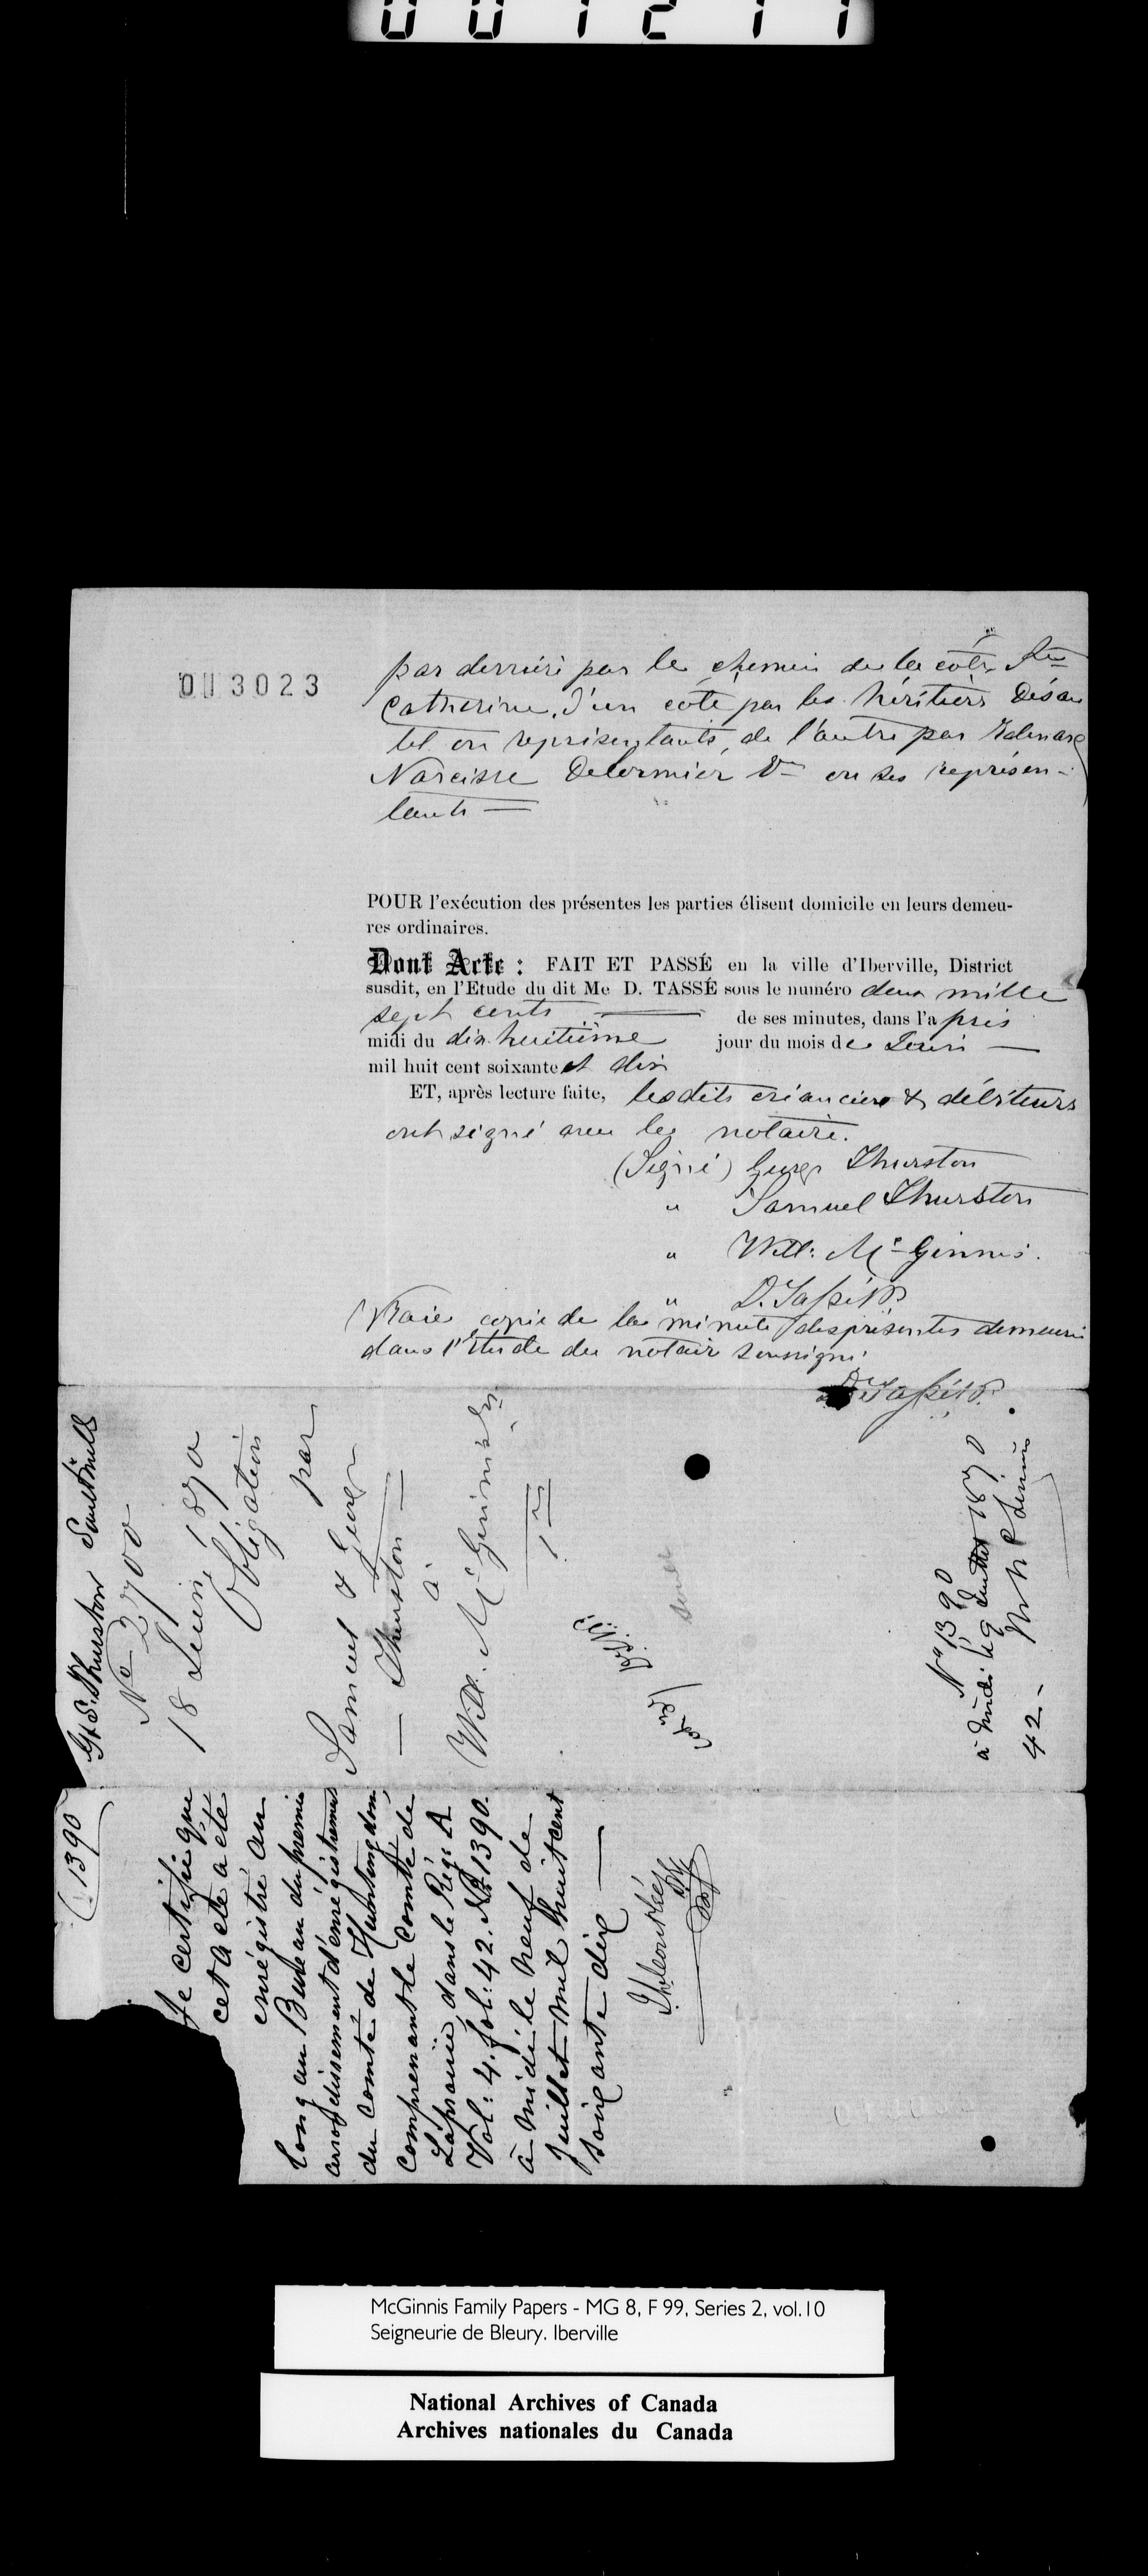 001211
003023
par derrière par le chemin de la côte Ste
Catherine, d'un coté par les héritiers Désau
tel ou représentants, de l'autre par
Narcisse Delormier ou ses représen-
tants —
POUR l'exécution des présentes les parties élisent domicile en leurs demeu-
res ordinaires.
Dont Acte : FAIT ET PASSÉ en la ville d'Iberville, District
susdit, en l'Etude du dit Me D. TASSÉ sous le numéro deux mille
sept cents — de ses minutes, dans l'après
midi du dix-huitième jour du mois de Juin —
mil huit cent soixante et dix
ET, après lecture faite, les dits créanciers & débiteurs
ont signé avec le notaire.
(Signé) George Thurston
" Samuel Thurston
" Will: McGinnis.
" D. Tassé N.P.
Vraie copie de la minute des présentes demeurée
dans l'Etude du notaire soussigné
D. Tassé N.P.
G & S. Thurston Sault
No 2700
18 Juin 1870
Obligation
par
Samuel & George
— Thurston —
à
Will. McGinnis
No 1390
à midi le 9 Juillet 1870
42 -
(1390)
Je certifie que
cet acte a été
enrégistré au
long au Bureau du premier
arrondissement d'enregistrement
du comté de Huntingdon,
comprenant le comté de
Laprairie, dans le Rég: A
Vol: 4. fol: 42. No 1390.
à midi le neuf de
Juillet mil huit cent
soixante dix —
McGinnis Family Papers - MG 8, F 99, Series 2, vol.10
Seigneurie de Bleury. Iberville
National Archives of Canada
Archives nationales du Canada